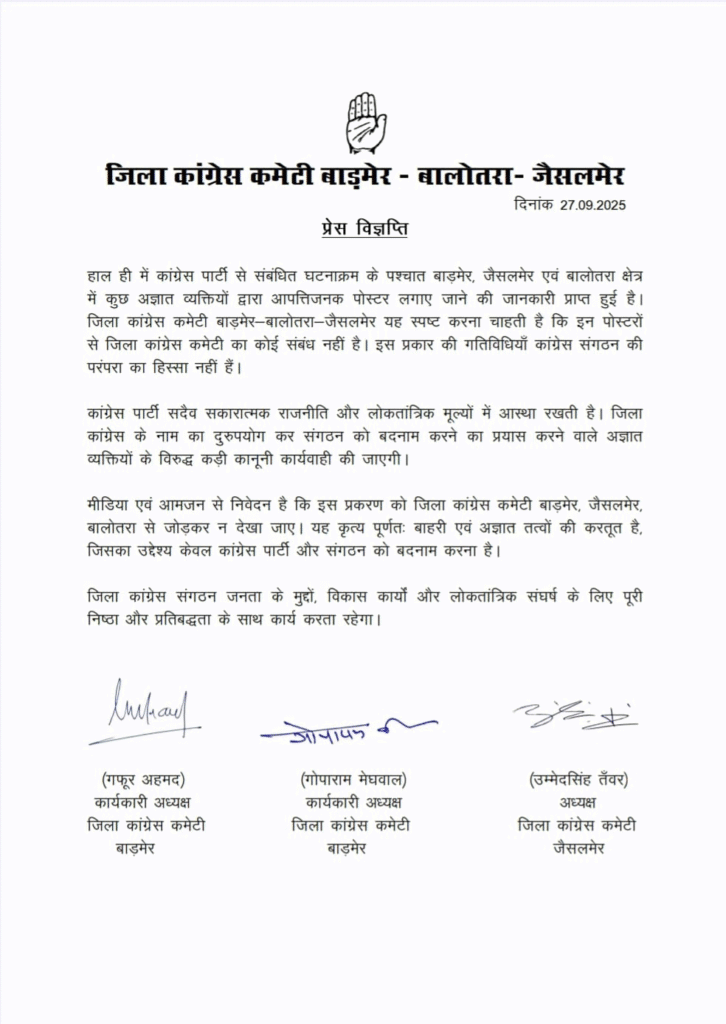 जिला कांग्रेस कमेटी बाड़मेर - बालोतरा- जैसलमेर
दिनांक 27.09.2025
प्रेस विज्ञप्ति
हाल ही में कांग्रेस पार्टी से संबंधित घटनाक्रम के पश्चात बाड़मेर, जैसलमेर एवं बालोतरा क्षेत्र
में कुछ अज्ञात व्यक्तियों द्वारा आपत्तिजनक पोस्टर लगाए जाने की जानकारी प्राप्त हुई है।
जिला कांग्रेस कमेटी बाड़मेर–बालोतरा–जैसलमेर यह स्पष्ट करना चाहती है कि इन पोस्टरों
से जिला कांग्रेस कमेटी का कोई संबंध नहीं है। इस प्रकार की गतिविधियाँ कांग्रेस संगठन की
परंपरा का हिस्सा नहीं हैं।
कांग्रेस पार्टी सदैव सकारात्मक राजनीति और लोकतांत्रिक मूल्यों में आस्था रखती है। जिला
कांग्रेस के नाम का दुरुपयोग कर संगठन को बदनाम करने का प्रयास करने वाले अज्ञात
व्यक्तियों के विरुद्ध कड़ी कानूनी कार्यवाही की जाएगी।
मीडिया एवं आमजन से निवेदन है कि इस प्रकरण को जिला कांग्रेस कमेटी बाड़मेर, जैसलमेर,
बालोतरा से जोड़कर न देखा जाए। यह कृत्य पूर्णतः बाहरी एवं अज्ञात तत्वों की करतूत है,
जिसका उद्देश्य केवल कांग्रेस पार्टी और संगठन को बदनाम करना है।
जिला कांग्रेस संगठन जनता के मुद्दों, विकास कार्यों और लोकतांत्रिक संघर्ष के लिए पूरी
निष्ठा और प्रतिबद्धता के साथ कार्य करता रहेगा।
(गफूर अहमद) (गोपाराम मेघवाल) (उम्मेदसिंह तँवर)
कार्यकारी अध्यक्ष कार्यकारी अध्यक्ष अध्यक्ष
जिला कांग्रेस कमेटी जिला कांग्रेस कमेटी जिला कांग्रेस कमेटी
बाड़मेर बाड़मेर जैसलमेर